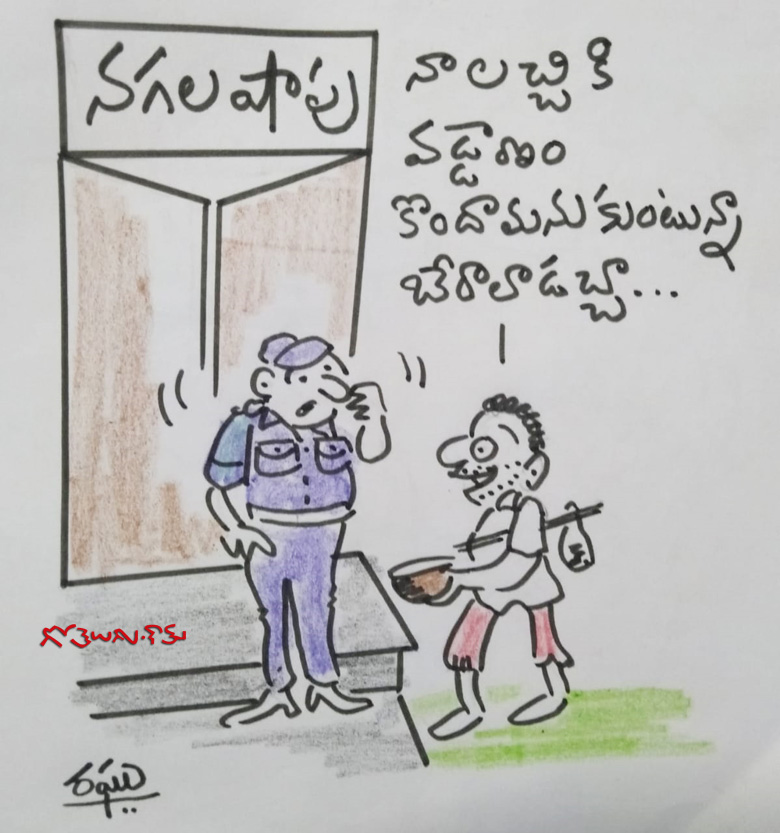 నగల షాపు
నా లచ్చి కి
వడ్డాణం
కొందామనుకుంటున్నా
బేరాలాడచ్చా...
గోతెలుగు.కామ్
రఘు